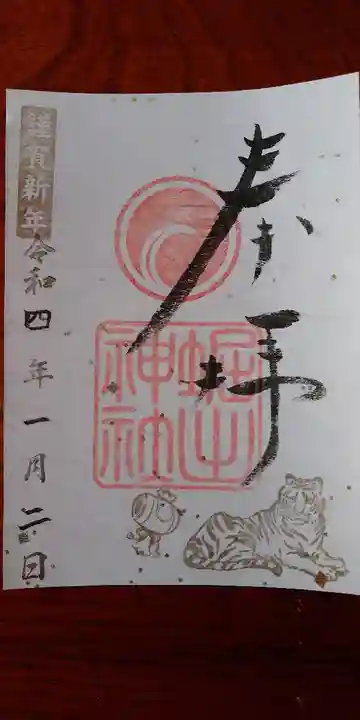 奉拝
蛇山
神社
謹賀新年
令和四年一月二日